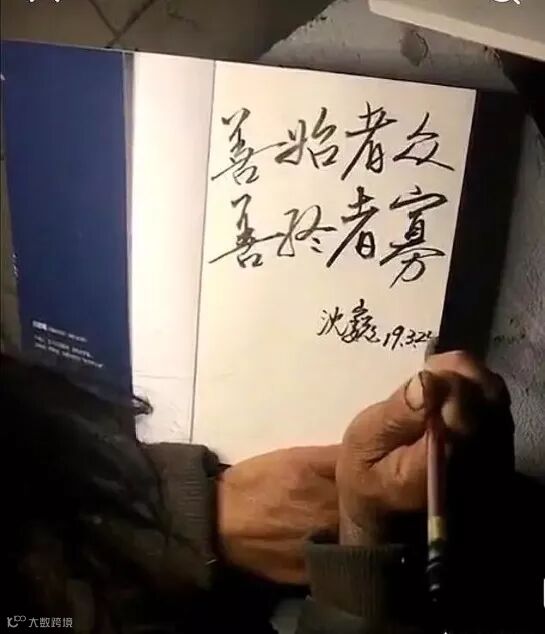 善始者众
善终者寡
沈巍 19.3.22
大数跨境